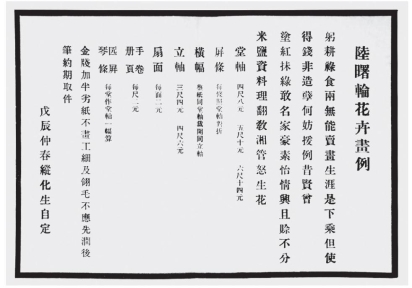 陸曙輪花卉畫例
躬耕祿食兩無能賣畫生涯是下乘但使
得錢非造孽何妨援例昔賢曾
塗紅抹綠敢名家豪素怡情興且賒不分
米鹽資料理翻教湘管怒生花
堂軸 四尺八元 五尺十元 六尺十四元
屏條 每條照堂軸對折
橫幅 整紙同堂軸裁開同立軸
立軸 三尺四元 四尺六元
扇面 每面二元
手卷 冊頁 每尺二元
匹屏 琴條 每堂作堂軸一幅算
金牋加半劣紙不畫工細及翎毛不應先潤後
筆約期取件
戊辰仲春縱化生自定